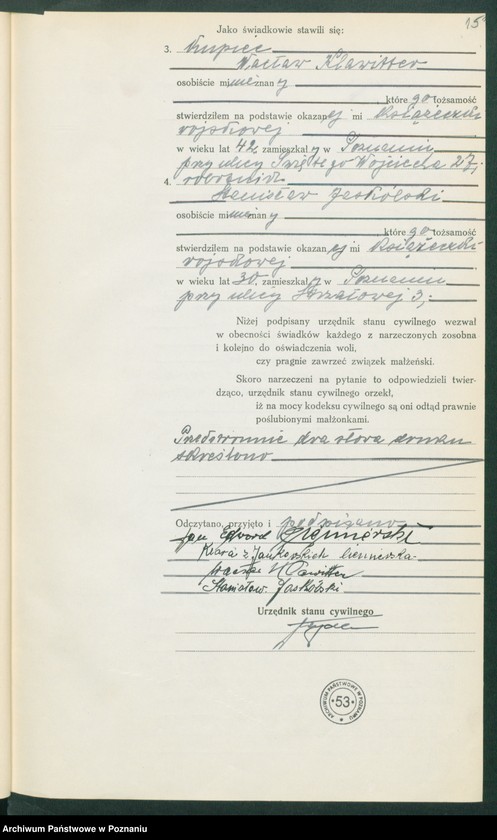 15
Jako świadkowie stawili się:
3. Kupiec
Wacław Klawitter
osobiście mi nieznany
, którego tożsamość
stwierdziłem na podstawie okazanej mi książeczki
wojskowej
w wieku lat 42, zamieszkały w Poznaniu
przy ulicy Świętego Wojciecha 27;
4. robotnik
Stanisław Jaskólski
osobiście mi nieznany
, którego tożsamość
stwierdziłem na podstawie okazanej mi książeczki
wojskowej
w wieku lat 30, zamieszkały w Poznaniu
przy ulicy Strzałowej 3;
Niżej podpisany urzędnik stanu cywilnego wezwał
w obecności świadków każdego z narzeczonych zosobna
i kolejno do oświadczenia woli,
czy pragnie zawrzeć związek małżeński.
Skoro narzeczeni na pytanie to odpowiedzieli twier-
dząco, urzędnik stanu cywilnego orzekł,
iż na mocy kodeksu cywilnego są oni odtąd prawnie
poślubionymi małżonkami.
Przedstronnie dwa słowa druku
skreślono
Odczytano, przyjęto i podpisano
Jan Edward
Klara z Jankowskich
Wacław Klawitter
Stanisław Jaskólski
Urzędnik stanu cywilnego
ARCHIWUM PAŃSTWOWE W POZNANIU
53
Archiwum Państwowe w Poznaniu